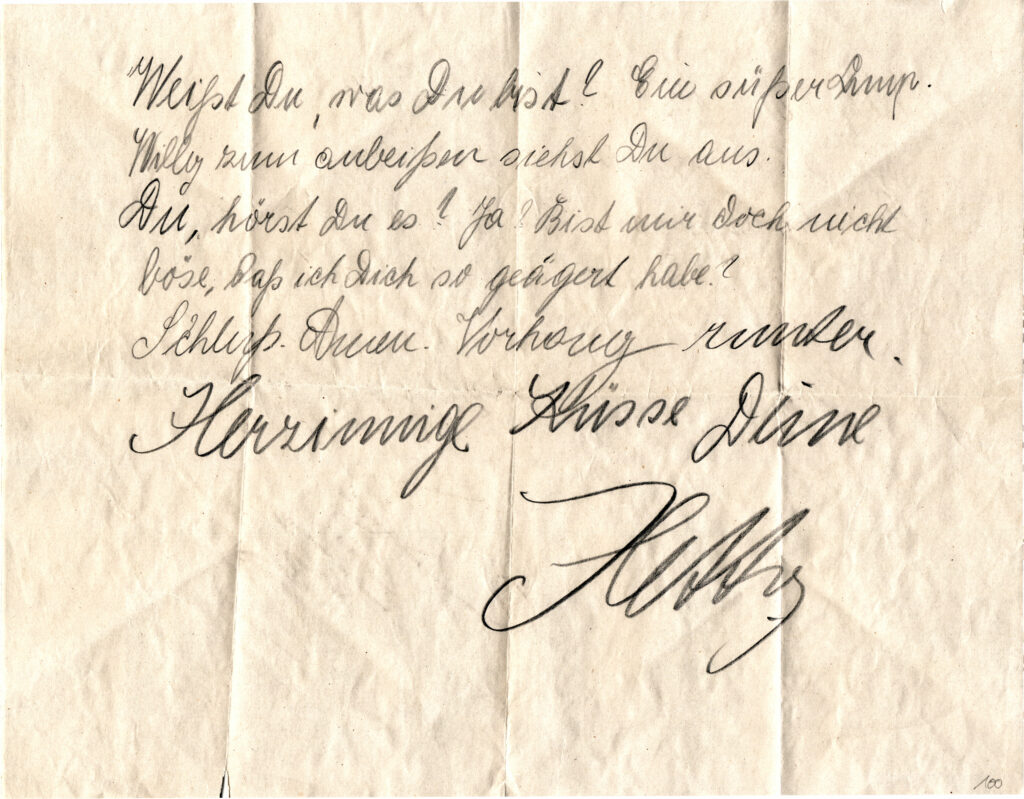 Weißt Du, was Du bist? Ein süßer Lump.
Willy zum anbeißen siehst Du aus.
Du, hörst Du es? Ja? Bist mir doch nicht
böse, daß ich Dich so geägert habe?
Schluß. Amen. Vorhang runter.
Herzinnige Küsse Deine
Hetty
100